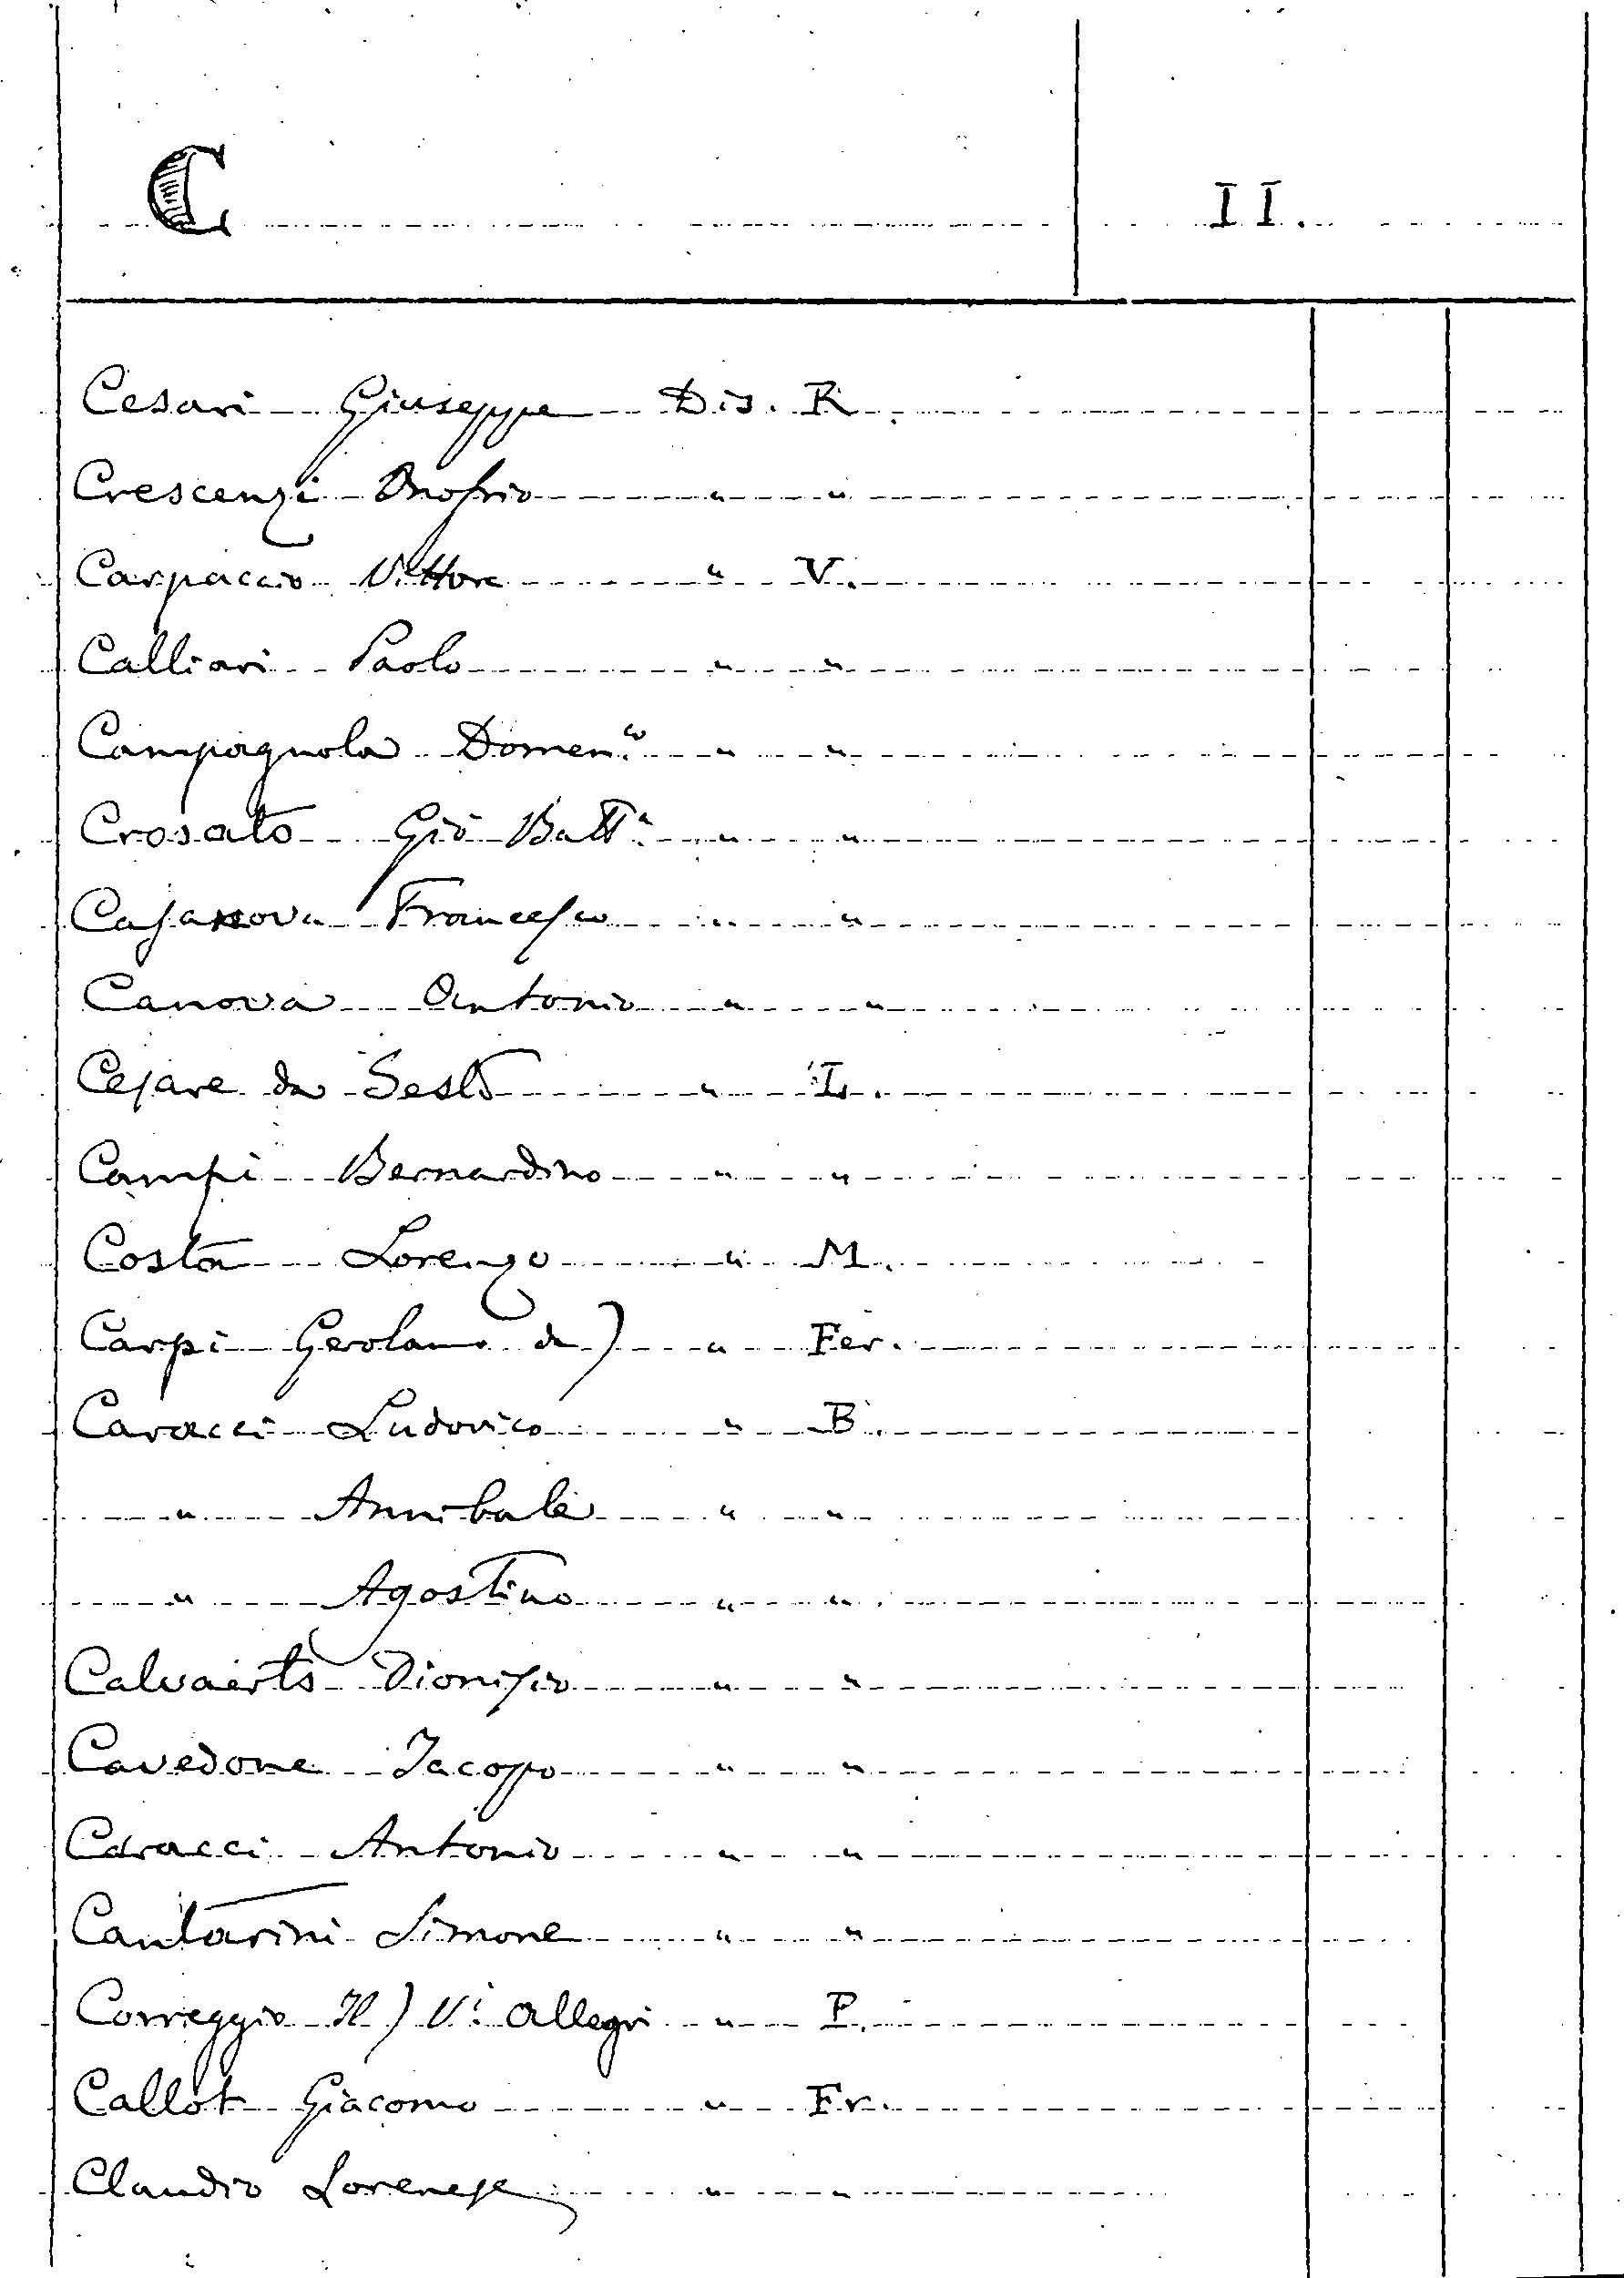 C II.
Cesari Giuseppe Dis. R.
Crescenzi Onofrio " "
Carpaccio Vittore " V.
Calliari Paolo " "
Campagnola Domen.co " "
Crosato Gio Batt.a " "
Casanova Francesco " "
Canova Antonio " "
Cesare da Sesto " L.
Campi Bernardino " "
Costa Lorenzo " M.
Carpi Gerolamo da) " Fer.
Caracci Ludovico " B.
" Annibale " "
" Agostino " "
Calvaerts Dionisio " "
Cavedone Jacopo " "
Caracci Antonio " "
Cantarini Simone " "
Correggio Il) Vi Allegri " P.
Callot Giacomo " Fr.
Claudio Lorenese " "